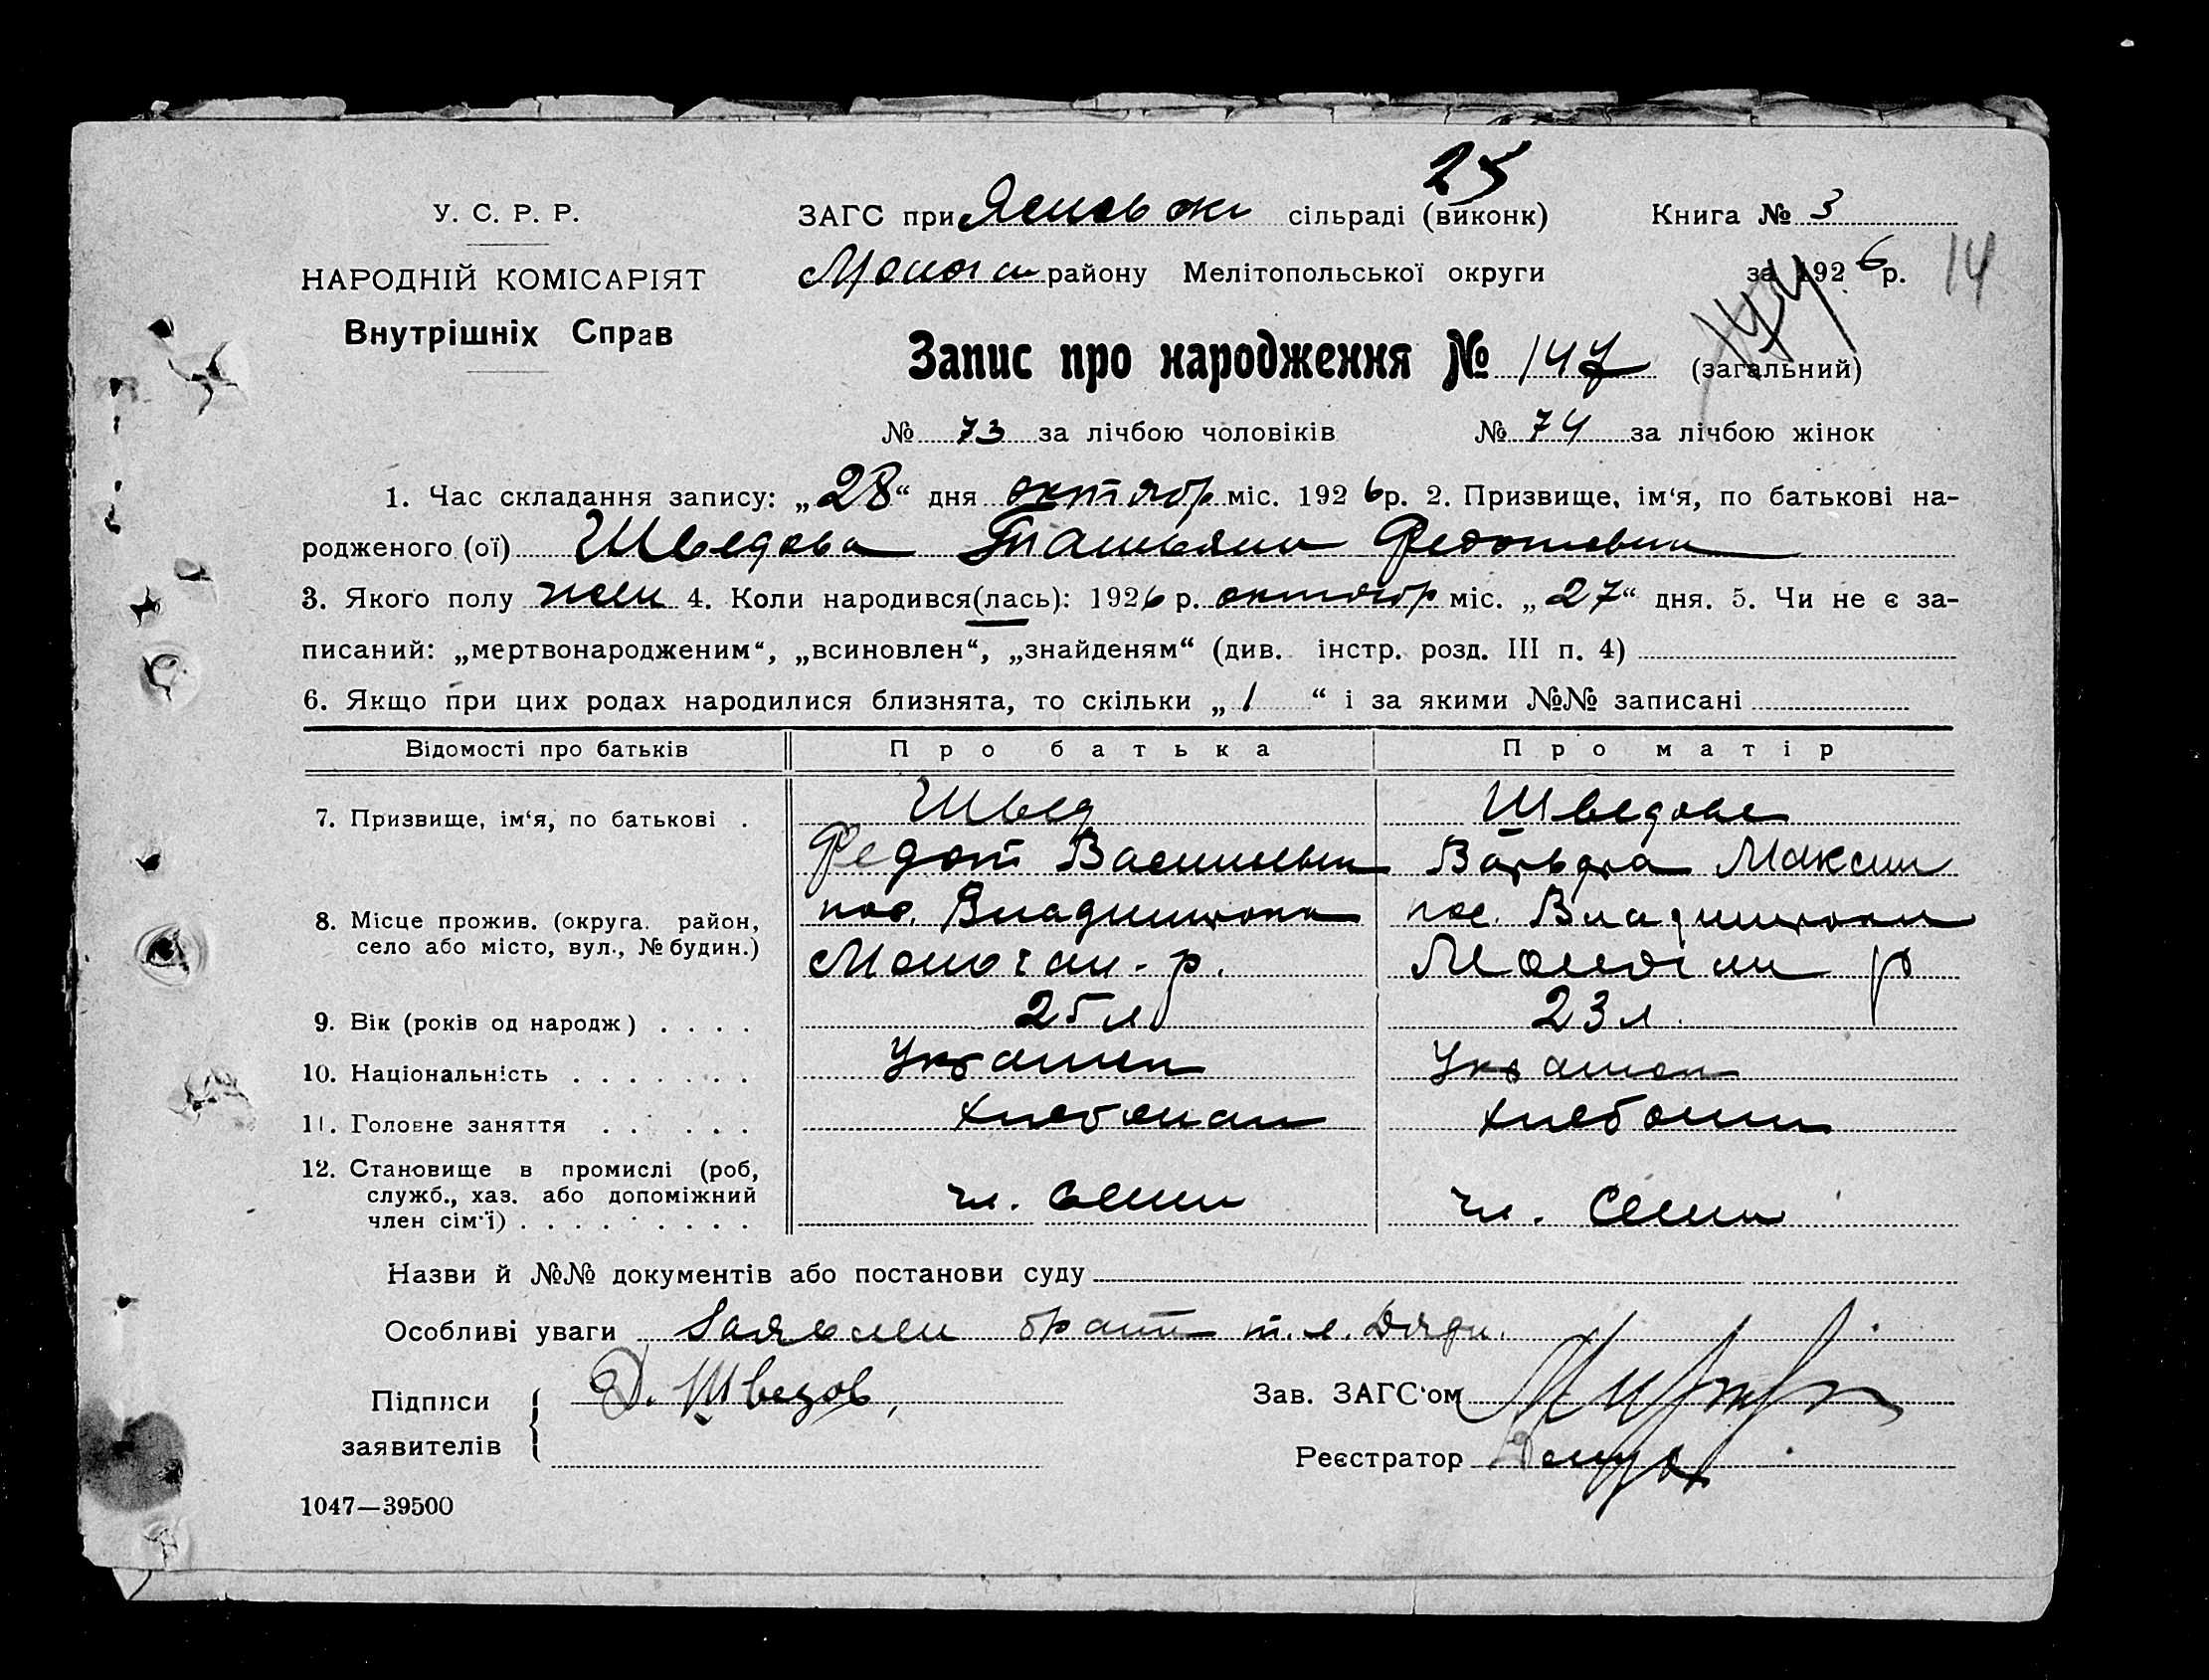 25
У. С. Р. Р.
НАРОДНІЙ КОМІСАРІЯТ
Внутрішніх Справ
ЗАГС при сільраді (виконк)
району Мелітопольської округи
Книга № 3
за 1926 р. 14
Запис про народження № 147 (загальний)
№ 73 за лічбою чоловіків № 74 за лічбою жінок
1. Час складання запису: „28“ дня октябр міс. 1926 р. 2. Призвище, ім‘я, по батькові на-
родженого (ої) Шведова Татьяна Федотовна
3. Якого полу жен 4. Коли народився(лась): 1926 р. октябр міс. „27“ дня. 5. Чи не є за-
писаний: „мертвонародженим“, „всиновлен“, „знайденям“ (див. інстр. розд. III п. 4)
6. Якщо при цих родах народилися близнята, то скільки „1“ і за якими №№ записані
Відомості про батьків Про батька Про матір
7. Призвище, ім‘я, по батькові . Швед Шведова
Федот Васильев Варвара Максим
8. Місце прожив. (округа. район, пос. пос.
село або місто, вул., № будин.) р. р
9. Вік (років од народж) . . . . 25 л 23 л.
10. Національність . . . . . . . Украин Украин
11. Головне заняття . . . . . . хлебопаш хлебопаш
12. Становище в промислі (роб,
служб., хаз. або допоміжний чл. семи чл. семи
член сім‘ї) . . . . . . . . .
Назви й №№ документів або постанови суду
Особливі уваги Заявлен брат т. е. дядя.
Підписи
заявителів
Д. Шведов,
Зав. ЗАГС‘ом
Реєстратор
1047—39500